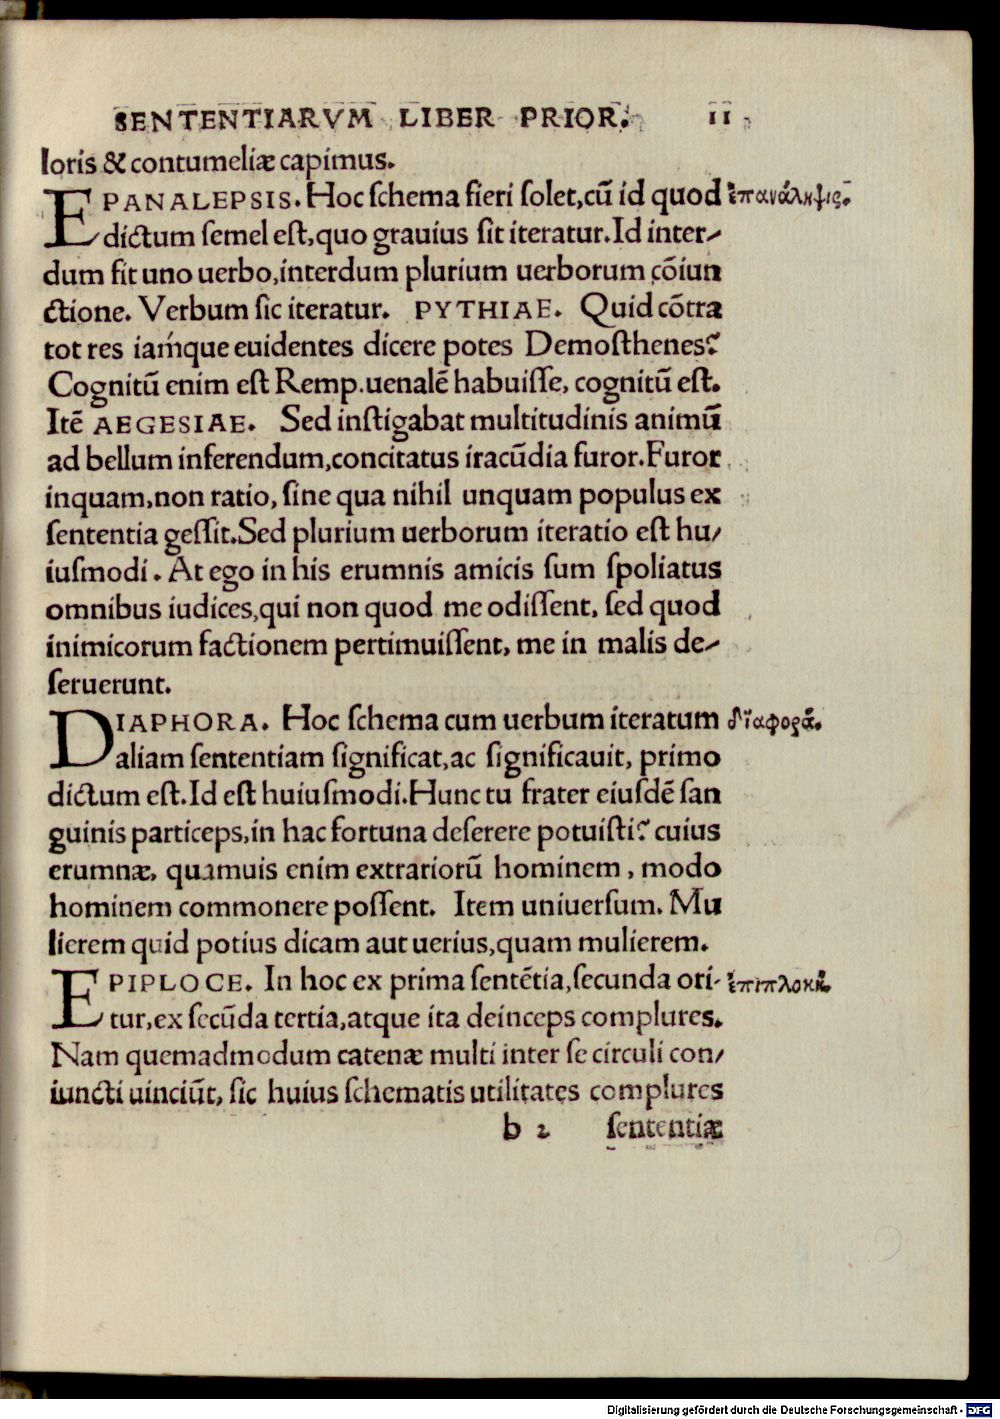 SENTENTIARVM LIBER PRIOR. 11
loris & contumeliæ capimus.
EPANALEPSIS. Hoc schema fieri solet, cū id quod ἐπανάληψις.
dictum semel est, quo grauius sit iteratur. Id inter-
dum fit uno uerbo, interdum plurium uerborum cōiun
ctione. Verbum sic iteratur. PYTHIAE. Quid cōtra
tot res iamque euidentes dicere potes Demosthenes?
Cognitū enim est Remp. uenalē habuisse, cognitū est.
Itē AEGESIAE. Sed instigabat multitudinis animū
ad bellum inferendum, concitatus iracūdia furor. Furor
inquam, non ratio, sine qua nihil unquam populus ex
sententia gessit. Sed plurium uerborum iteratio est hu-
iusmodi. At ego in his erumnis amicis sum spoliatus
omnibus iudices, qui non quod me odissent, sed quod
inimicorum factionem pertimuissent, me in malis de-
seruerunt.
DIAPHORA. Hoc schema cum uerbum iteratum διαφορά.
aliam sententiam significat, ac significauit, primo
dictum est. Id est huiusmodi. Hunc tu frater eiusdē san
guinis particeps, in hac fortuna deserere potuisti? cuius
erumnæ, quamuis enim extrariorū hominem, modo
hominem commonere possent. Item uniuersum. Mu
lierem quid potius dicam aut uerius, quam mulierem.
EPIPLOCE. In hoc ex prima sentētia, secunda ori- ἐπιπλοκή.
tur, ex secūda tertia, atque ita deinceps complures.
Nam quemadmodum catenæ multi inter se circuli con-
iuncti uinciūt, sic huius schematis utilitates complures
b 2 sententiæ
Digitalisierung gefördert durch die Deutsche Forschungsgemeinschaft - DFG